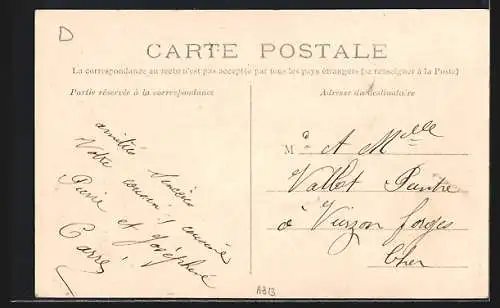 D
CARTE POSTALE
La correspondance au recto n'est pas acceptée par tous les pays étrangers (se renseigner à la Poste)
Partie réservée à la correspondance
Adresse du destinataire
amitiés Sincères
Votre cousin, cousine
Pierre et Joséphine
Carré
M et Melle
Vallet Peintre
à Vierzon forges
Cher